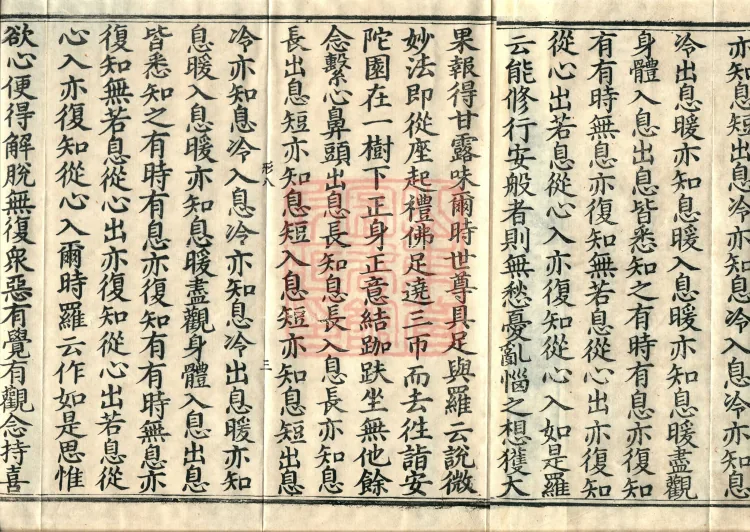 亦知息短出息冷亦知息冷入息
冷出息暖亦知息暖入息暖亦知息暖盡觀
身體入息出息皆悉知之有時有息亦復知
有有時無息亦復知無若息從心出亦復知
從心出若息從心入亦復知從心入如是羅
云能修行安般者則無愁憂亂惱之想獲大
果報得甘露味爾時世尊具足與羅云說微
妙法即從座起禮佛足遶三帀而去徃詣安
陀園在一樹下正身正意結跏趺坐無他餘
念繫心鼻頭出息長知息長入息長亦知息
長出息短亦知息短入息短亦知息短出息
形八
三
冷亦知息冷入息冷亦知息冷出息暖亦知
息暖入息暖亦知息暖盡觀身體入息出息
皆悉知之有時有息亦復知有有時無息亦
復知無若息從心出亦復知從心出若息從
心入亦復知從心入爾時羅云作如是思惟
欲心便得解脫無復衆惡有覺有觀念持喜